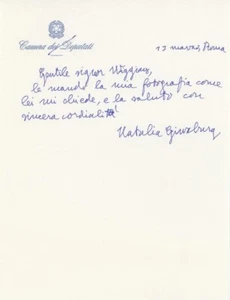 Camera dei Deputati
13 marzo, Roma
Gentile signor Wiggins,
le mando la mia fotografia come
lei mi chiede, e la saluto con
sincera cordialità
Natalia Ginzburg